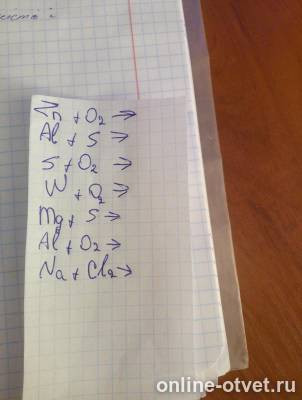 Zn + O₂ →
Al + S →
S + O₂ →
W + O₂ →
Mg + S →
Al + O₂ →
Na + Cl₂ →
online-otvet.ru